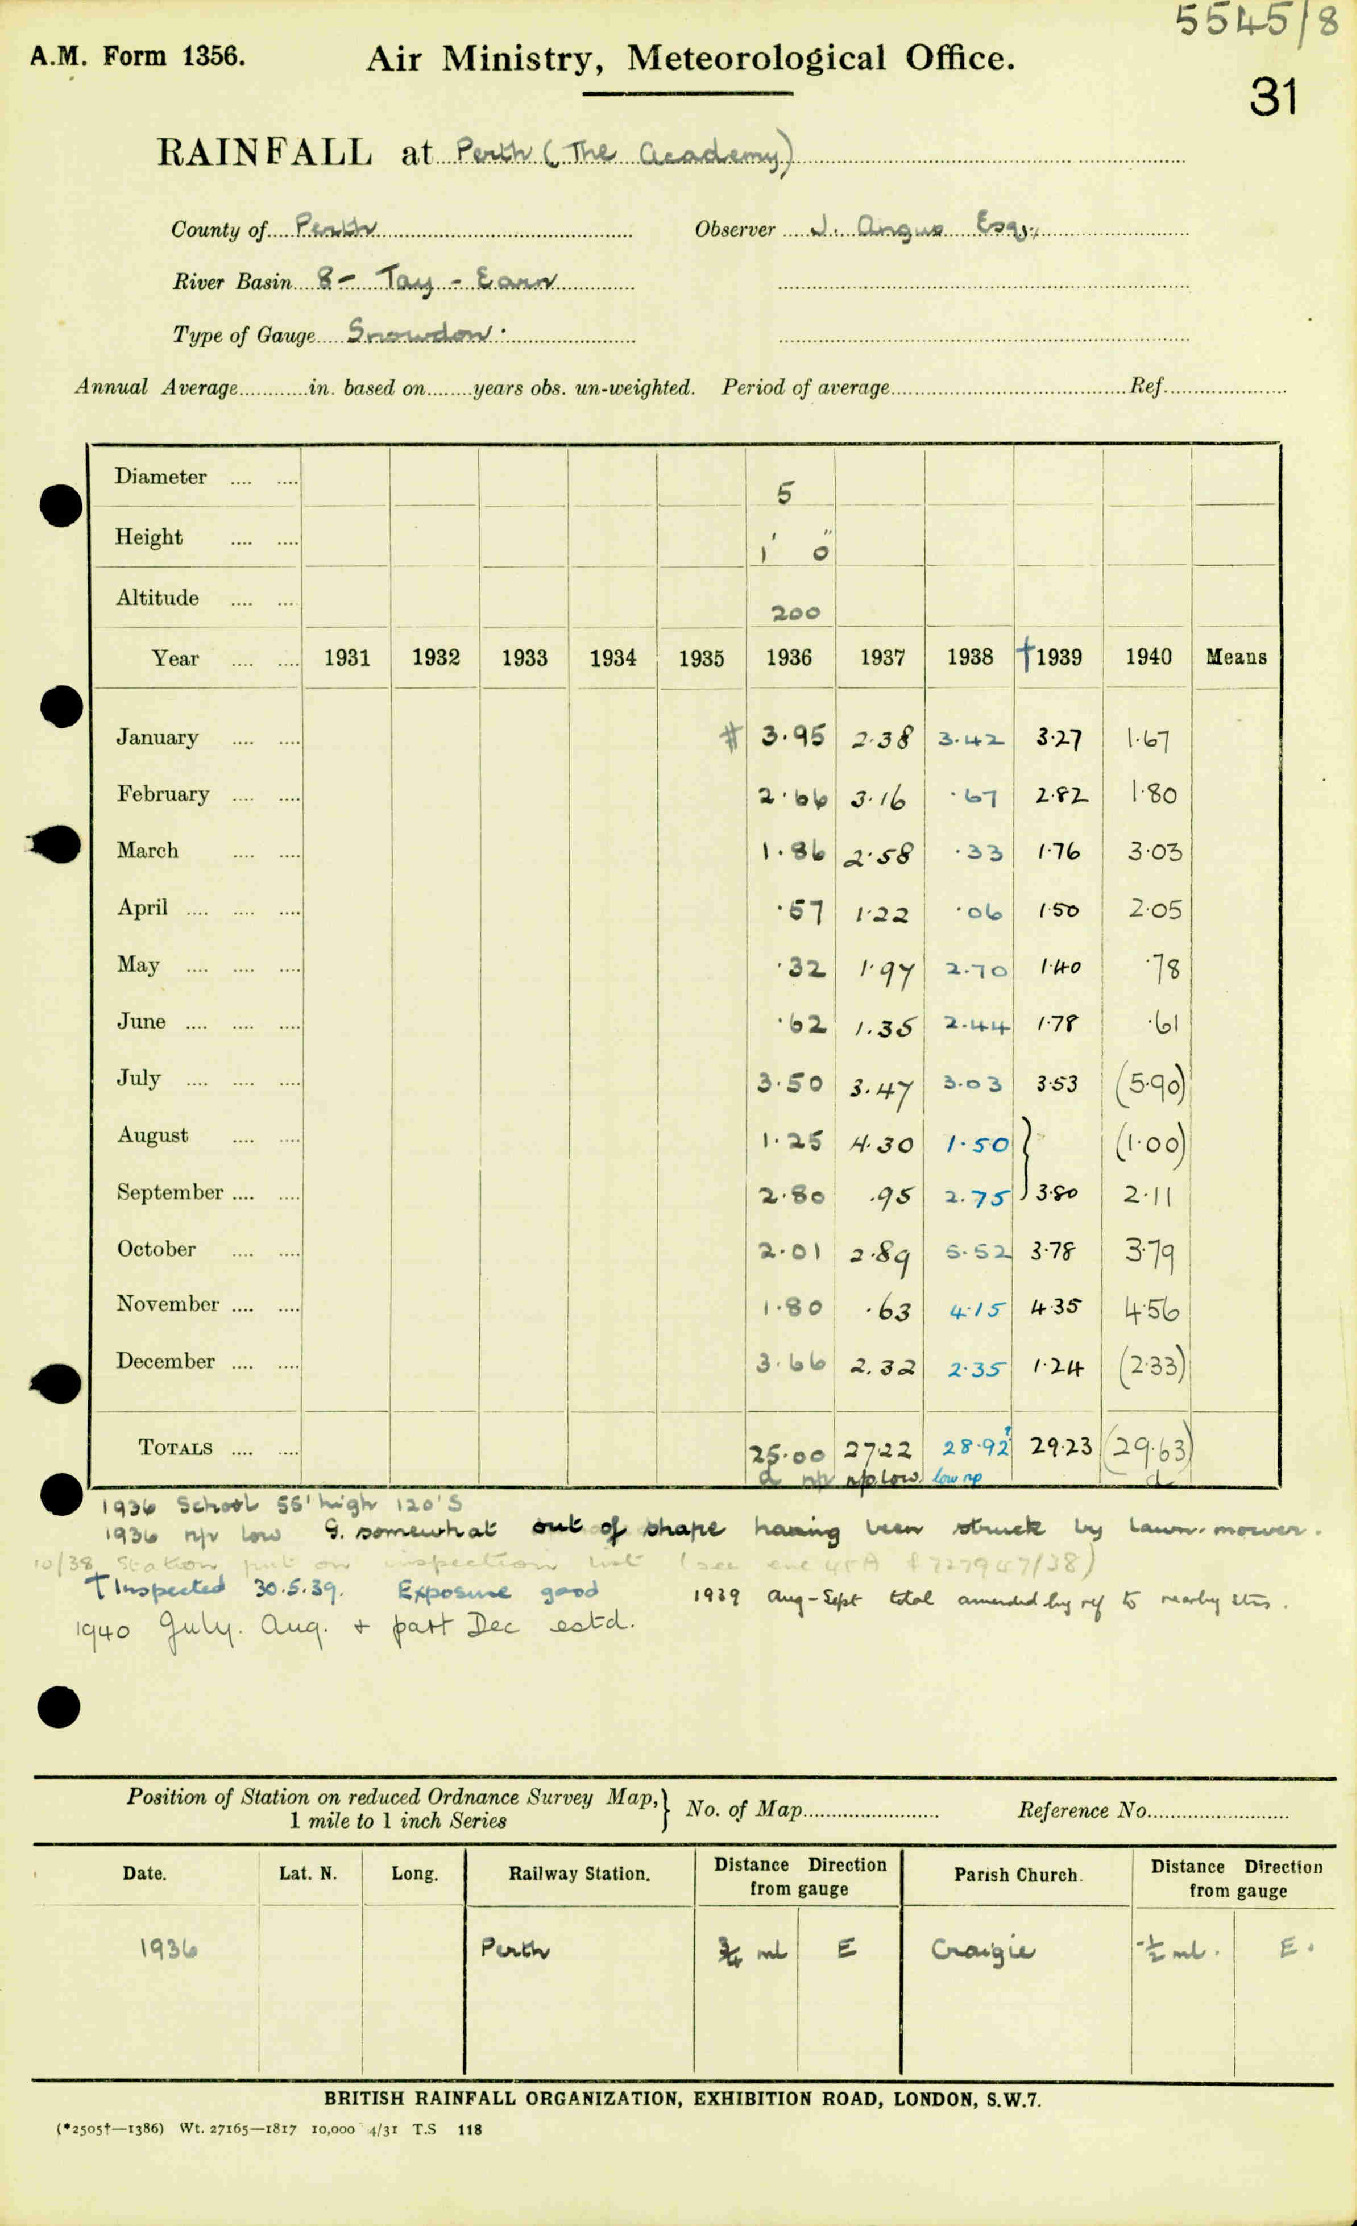 5545/8
A.M. Form 1356.
Air Ministry, Meteorological Office.
31
RAINFALL at Perth (The Academy)
County of Perth Observer J. Angus Esq.,
River Basin 8 - Tay - Earn
Type of Gauge Snowdon.
Annual Average............in. based on........years obs. un-weighted. Period of average.......... Ref..........
Diameter .... .... 5
Height .... .... 1' 0"
Altitude .... .... 200
Year .... .... 1931 1932 1933 1934 1935 1936 1937 1938 †1939 1940 Means
January .... .... # 3.95 2.38 3.42 3.27 1.67
February .... .... 2.66 3.16 .67 2.82 1.80
March .... .... 1.86 2.58 .33 1.76 3.03
April .... .... .... .57 1.22 .06 1.50 2.05
May .... .... .... .32 1.97 2.70 1.40 .78
June .... .... .... .62 1.35 2.44 1.78 .61
July .... .... .... 3.50 3.47 3.03 3.53 (5.90)
August .... .... 1.25 4.30 1.50 } (1.00)
September .... .... 2.80 .95 2.75 3.80 2.11
October .... .... 2.01 2.89 5.52 3.78 3.79
November .... .... 1.80 .63 4.15 4.35 4.56
December .... .... 3.66 2.32 2.35 1.24 (2.33)
TOTALS .... .... 25.00 27.22 28.92 29.23 (29.63)
d np n/p low low np d
1936 School 55' high 120'S
1936 n/p low G. somewhat out of shape having been struck by lawn-mower.
10/38 Station put on inspection list (see enc 45A f 727947/38)
† Inspected 30.5.39. Exposure good 1939 Aug-Sept total amended by ref to nearby stns.
1940 July. Aug. + part Dec estd.
Position of Station on reduced Ordnance Survey Map, } No. of Map.......... Reference No..........
1 mile to 1 inch Series
Date. Lat. N. Long. Railway Station. Distance Direction from gauge Parish Church. Distance Direction from gauge
1936 Perth 3/4 ml E Craigie 1/2 ml. E.
BRITISH RAINFALL ORGANIZATION, EXHIBITION ROAD, LONDON, S.W.7.
(*2505†—1386) Wt. 27165—1817 10,000 4/31 T.S 118